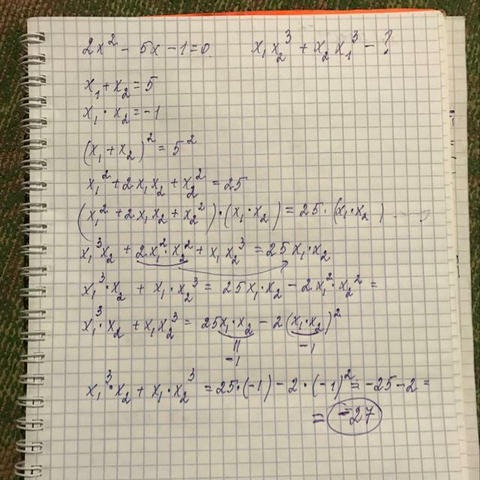 2x² - 5x - 1 = 0    x₁x₂³ + x₂x₁³ - ?
x₁ + x₂ = 5
x₁ · x₂ = -1
(x₁ + x₂)² = 5²
x₁² + 2x₁x₂ + x₂² = 25
(x₁² + 2x₁x₂ + x₂²) · (x₁ · x₂) = 25 · (x₁ · x₂)
x₁³x₂ + 2x₁² · x₂² + x₁x₂³ = 25x₁ · x₂
x₁³ · x₂ + x₁ · x₂³ = 25x₁ · x₂ - 2x₁² · x₂² =
x₁³ · x₂ + x₁x₂³ = 25x₁ · x₂ - 2(x₁ · x₂)²
-1    -1
x₁³ · x₂ + x₁ · x₂³ = 25 · (-1) - 2 · (-1)² = -25 - 2 =
= -27